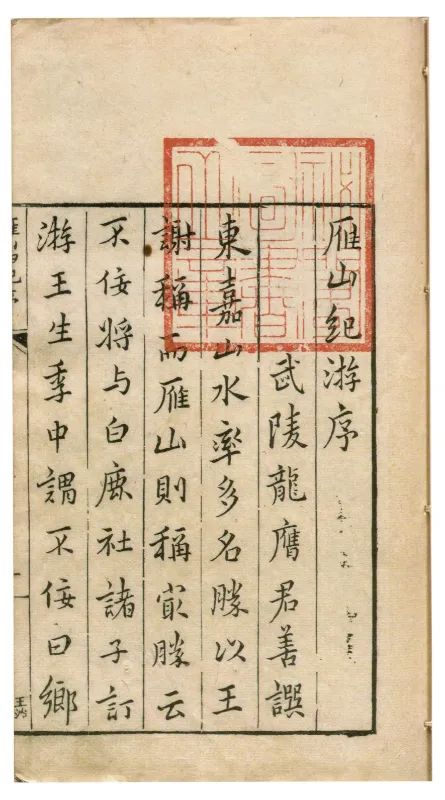 雁山紀游序
武陵龍膺君善譔
東嘉山水率多名勝以王
謝稱而雁山則稱㝡勝云
不佞將与白鹿社諸子訂
游王生季中謂不佞曰鄉